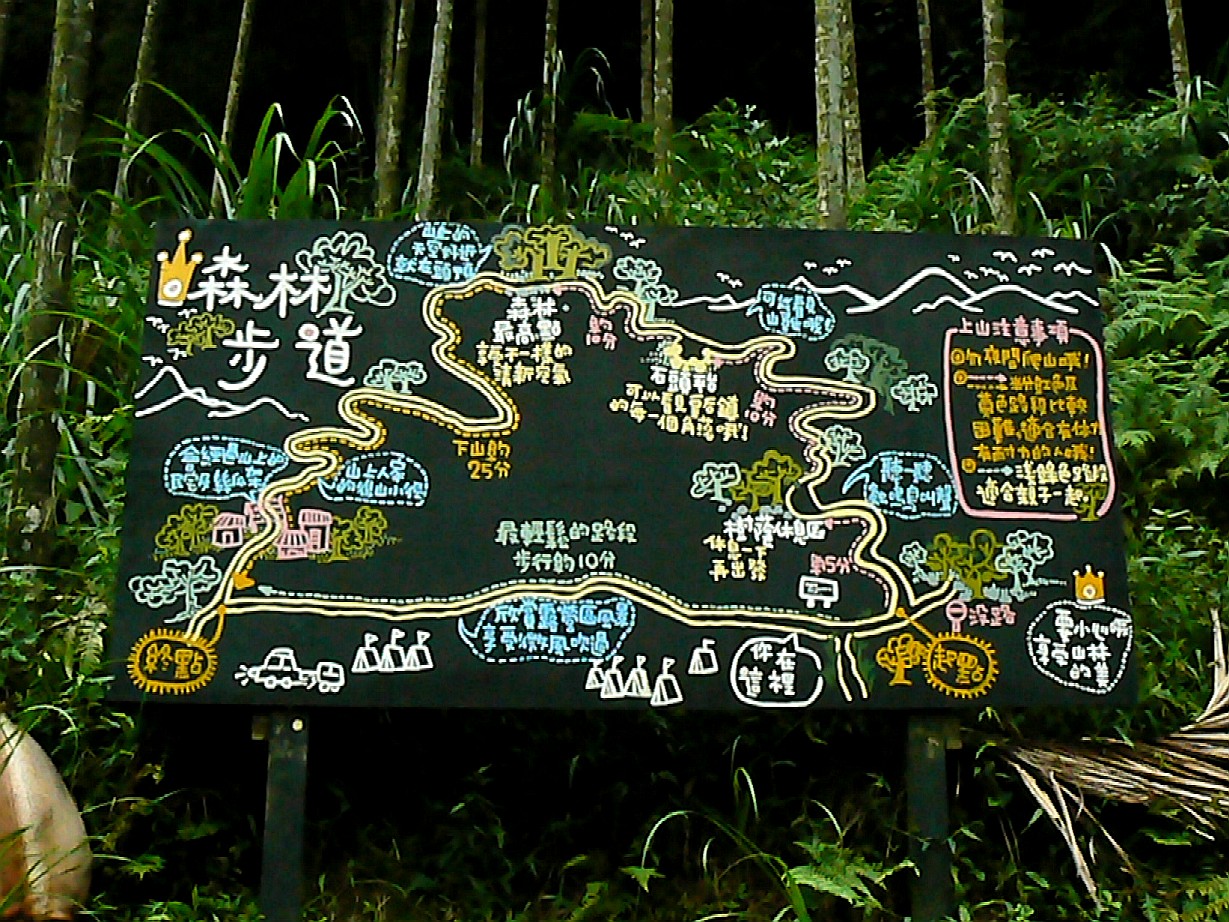 森林
步道
山上的
天空好近
就在頭頂
森林
最高點
享不一樣的
清新空氣
約
10分
可以看見
山巒哦
石頭
可以看見
的每一個角落哦!
約
10分
下山約
25分
會經過山上的
山上人家
聽一聽
蟲鳴鳥叫聲
樹蔭休息區
休息一下
再出發
約5分
最輕鬆的路段
步行約10分
欣賞露營區風景
享受微風吹過
你在
這裡
沒路
起點
終點
享受山林
的美
上山注意事項
勿夜間爬山哦!
粉紅色及
黃色路段比較
困難,適合有體力
有耐力的人哦!
淺綠色路段
適合親子一起。